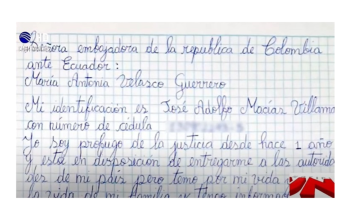 Señora embajadora de la republica de Colombia
ante Ecuador:
María Antonia Velasco Guerrero
Mi identificación es José Adolfo Macías Villama
con número de cédula
Yo soy profugo de la justicia desde hace 1 año
y está en disposición de entregarme a las autorida
des de mi país pero temo por mi vida
la vida de mi familia y tengo informac